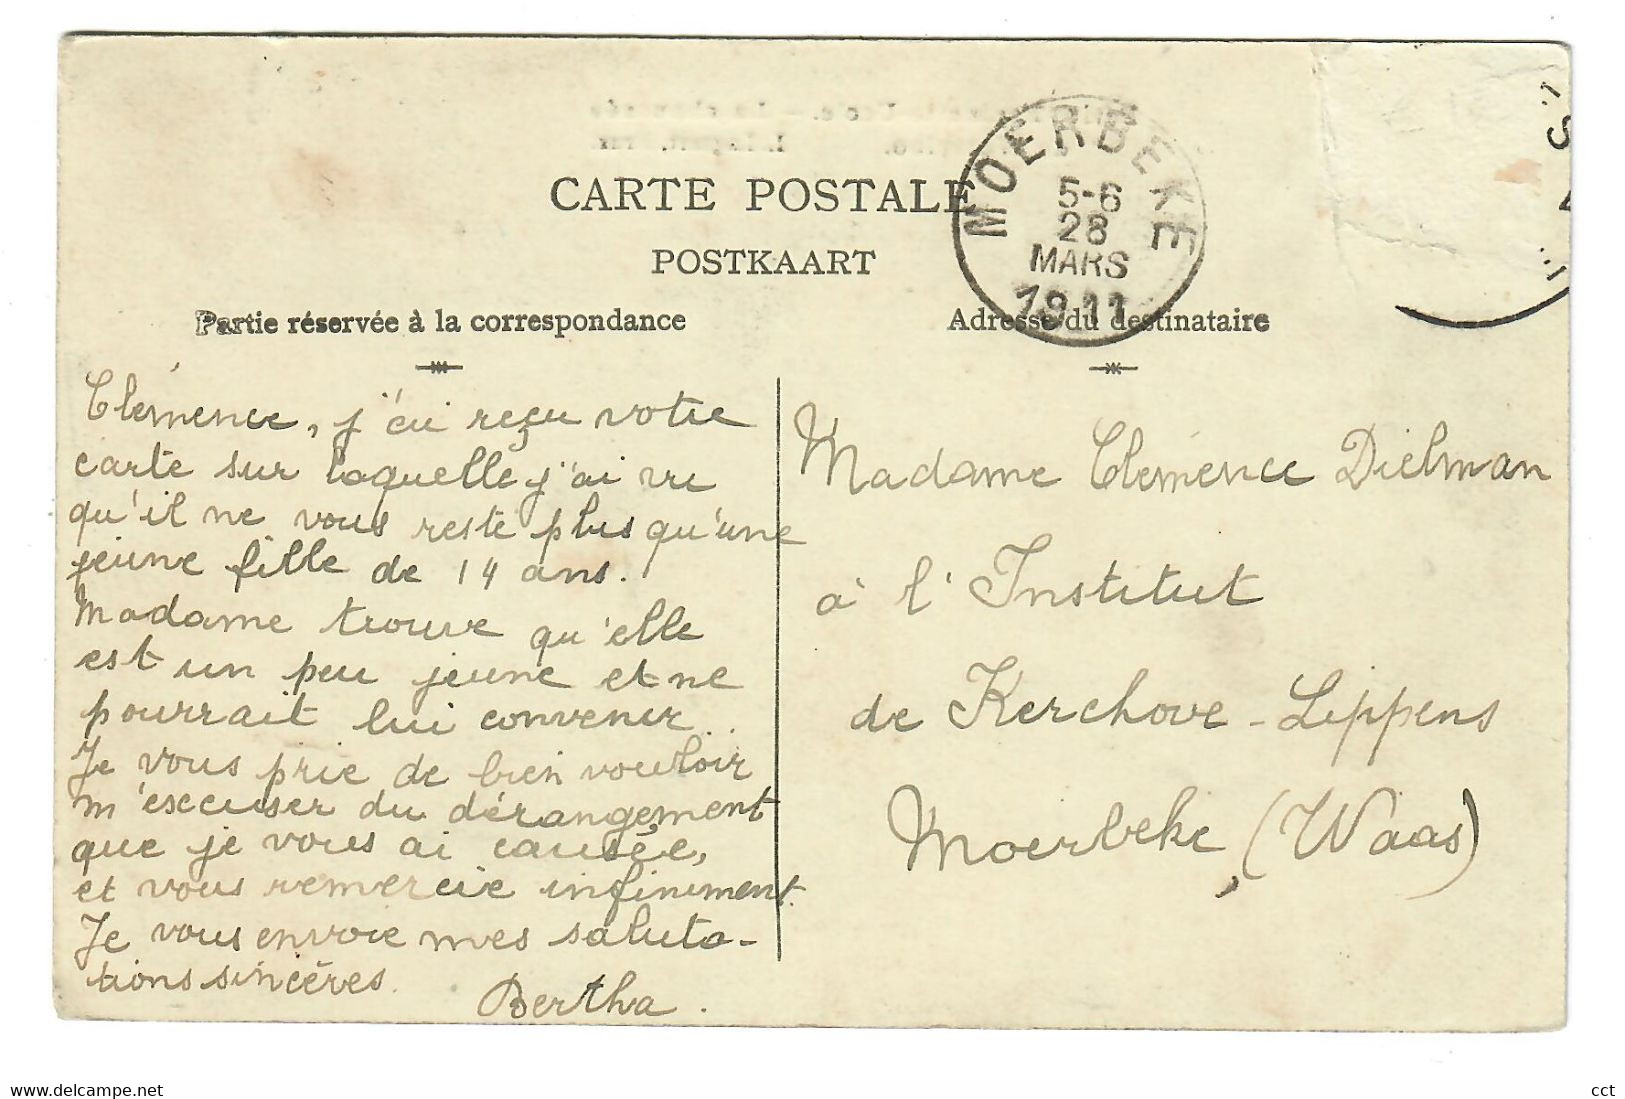 CARTE POSTALE
POSTKAART
MOERBEKE
5-6
28
MARS
1911
Partie réservée à la correspondance
Adresse du destinataire
Clémence, j'ai reçu votre
carte sur laquelle j'ai vu
qu'il ne vous reste plus qu'une
jeune fille de 14 ans.
Madame trouve qu'elle
est un peu jeune et ne
pourrait lui convenir..
Je vous prie de bien vouloir
m'excuser du dérangement
que je vous ai causée,
et vous remercie infiniment.
Je vous envoie mes saluta-
tions sincères.
Bertha.
Madame Clémence Dielman
à l'Institut
de Kerchove-Lippens
Moerbeke, (Waas)
www.delcampe.net
cct